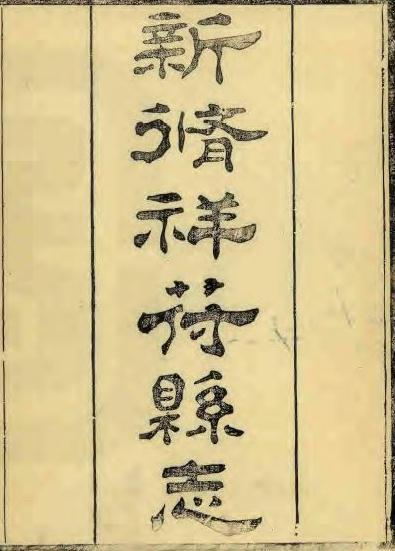 新脩祥符縣志